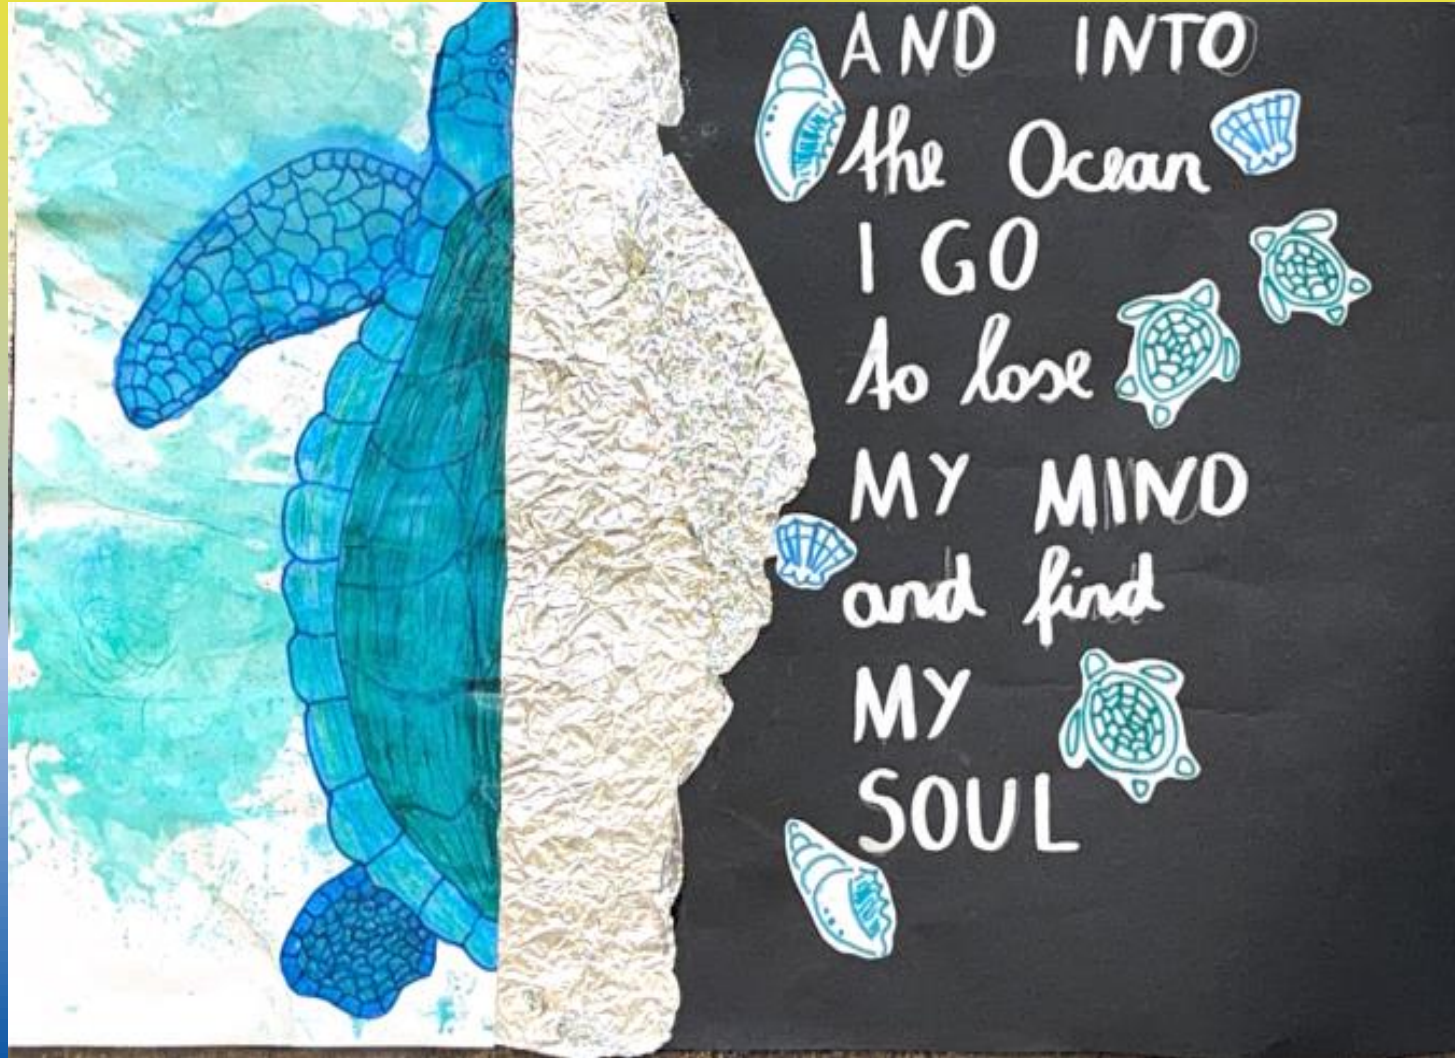 AND INTO
the Ocean
I GO
to lose
MY MIND
and find
MY
SOUL